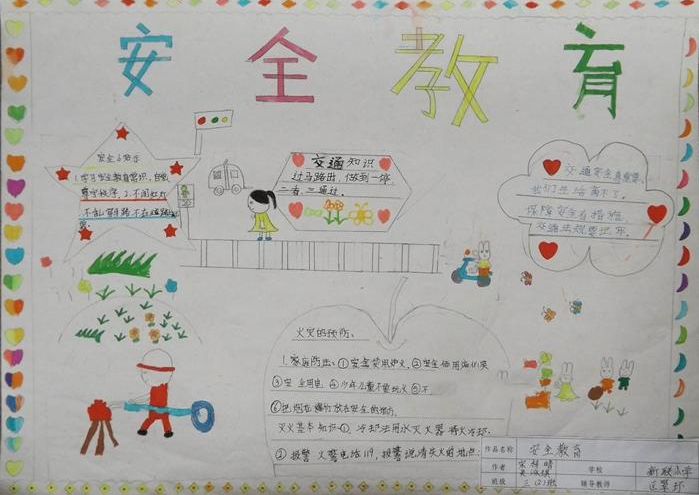 安全教育
安全与防护
1.学习安全教育常识，自觉
遵守秩序，2.不闯红灯
不乱穿马路不在道路
交通知识
过马路出，做到一停
二看，三通过。
交通安全真重要
我们生活离不了。
保障安全有措施
交通法规要记牢。
火灾的预防、
1.家庭防火：①安全使用炉火，②安全使用液化
③安全用电，④少年儿童不要玩火⑤不
⑥把烟花爆竹放在安全的地方
灭火基本知识①，冷却法用水灭火器将火冷却，
②报警 火警电话119，报警说清失火的地点
作品名称 安全教育
作者 学校
班级 三（2）班 辅导教师